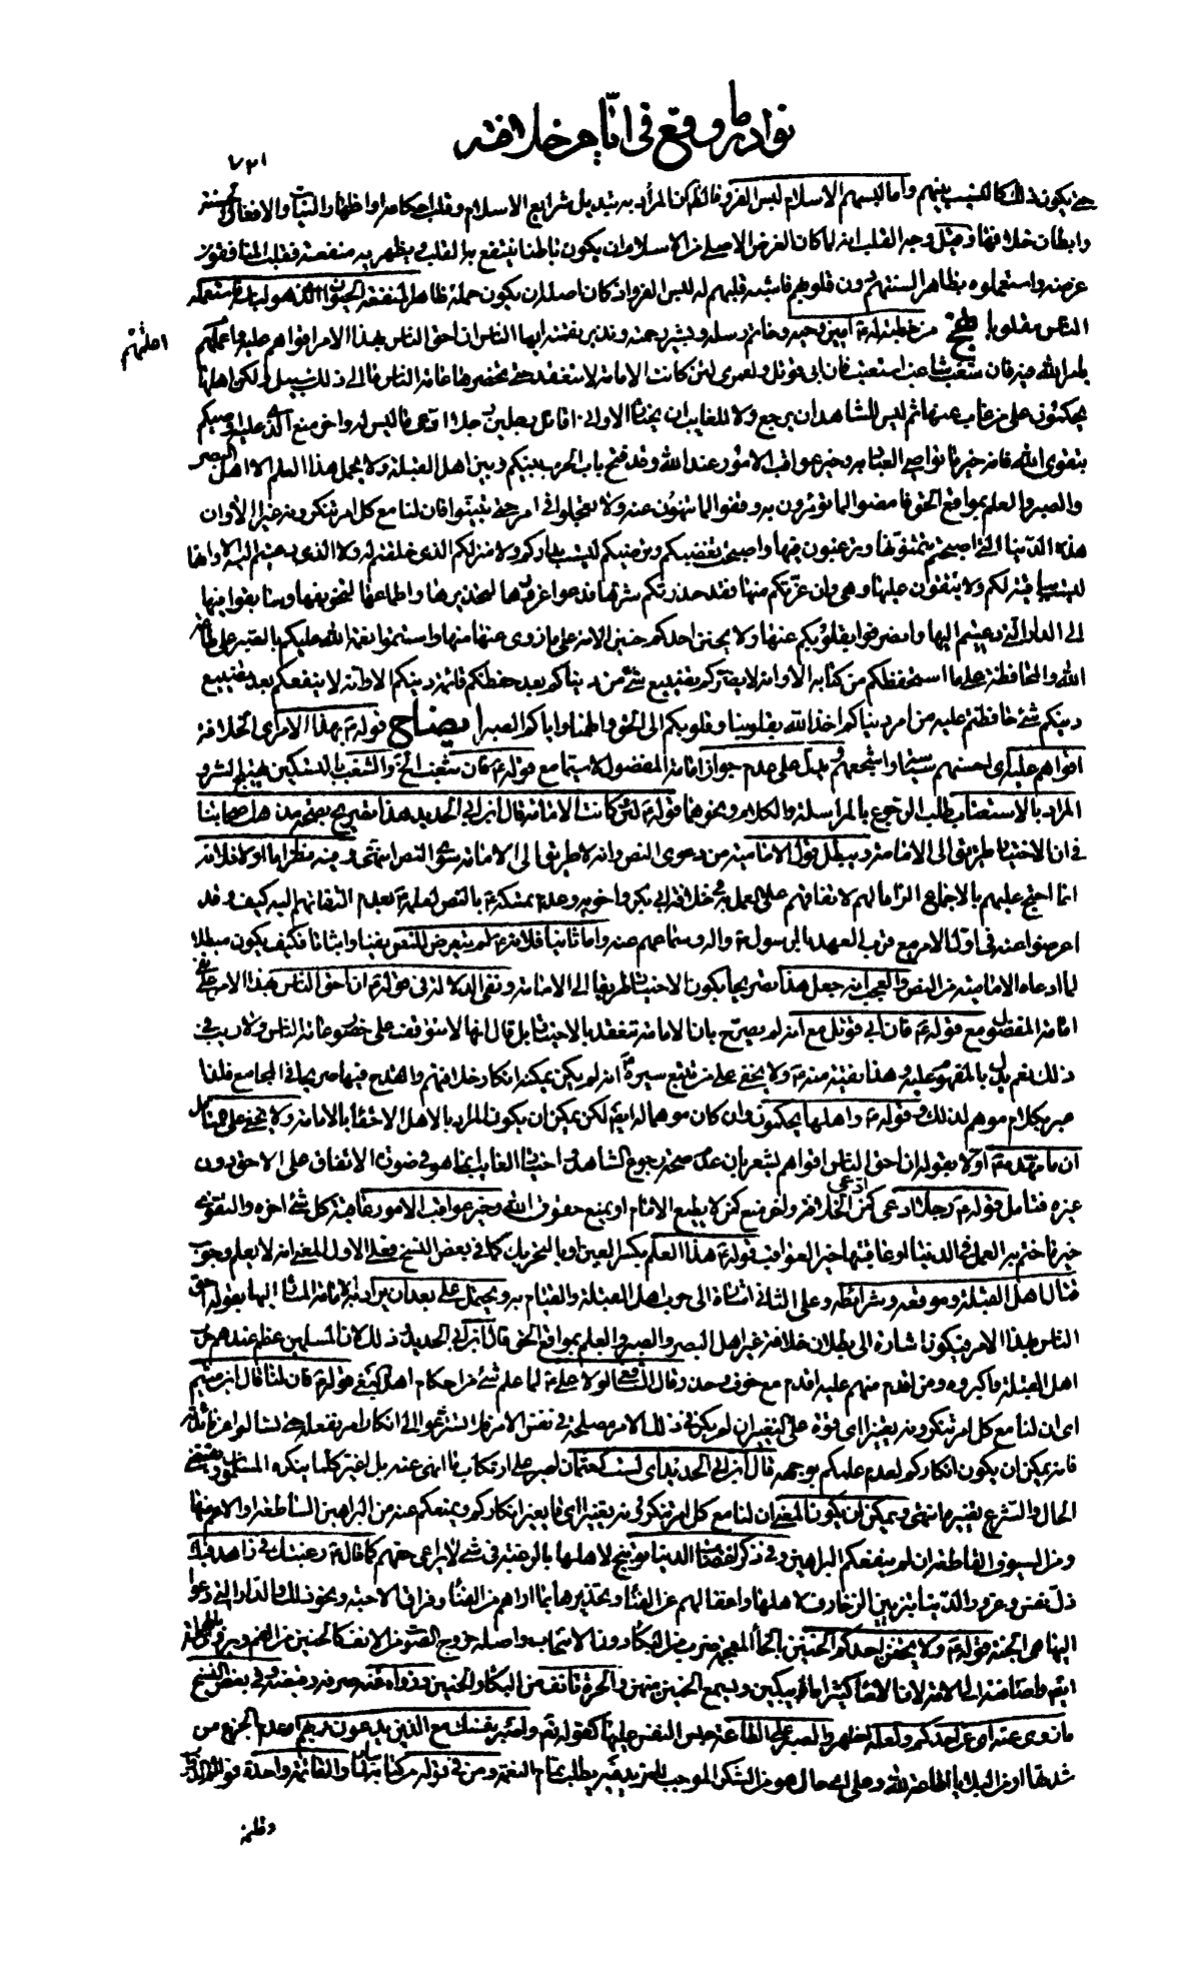 نوادر ما وقع في ايام خلافته
٧٣١
حتى يكون ذلك كالسبب بينهم واما لبسهم الاسلام لبس الفرو فالظاهر ان المراد به تبديل شرايع الاسلام وقلب احكامه او اظهار النيات والافعال الحسنة
وابطان خلافها وقيل وجه القلب انه لما كان الغرض الاصلي من الاسلام ان يكون باطنا ينتفع به القلب ويظهر به منفعة فقلب المنافقون
غرضه واستعملوه بظاهر السنتهم دون قلوبهم فاشبه قلبهم له لبس الفرو اذ كان اصله ان يكون حمله ظاهرا لمنفعة الحيوان الذي هو لباسه فاستعمله
الناس مقلوبا نهج من خطبة له ع امين وحيه وخاتم رسله وبشير رحمته ونذير نقمته ايها الناس ان احق الناس بهذا الامر اقواهم عليه واعملهم
اعلمهم
بامر الله فيه فان شغب شاغب استعتب فان ابى قوتل ولعمري لئن كانت الامامة لا تنعقد حتى تحضرها عامة الناس ما الى ذلك سبيل ولكن اهلها
يحكمون على من غاب عنها ثم ليس للشاهد ان يرجع ولا للغايب ان يختار الا واني اقاتل رجلين رجلا ادعى ما ليس له واخر منع الذي عليه اوصيكم
بتقوى الله فانه خير ما تواصى العباد به وخير عواقب الامور عند الله وقد فتح باب الحرب بينكم وبين اهل القبلة ولا يحمل هذا العلم الا اهل البصر
والصبر والعلم بمواقع الحق فامضوا لما تؤمرون به وقفوا لما تنهون عنه ولا تعجلوا في امر حتى تتبينوا فان لنا مع كل امر تنكرونه غيرا الا وان
هذه الدنيا التي اصبحتم تتمنونها وترغبون فيها واصبحت تغضبكم وترضيكم ليست بداركم ولا منزلكم الذي خلقتم له ولا الذي دعيتم اليه الا وانها
ليست بباقية لكم ولا تبقون عليها وهي وان غرتكم منها فقد حذرتكم شرها فدعوا غرورها لتحذيرها واطماعها لتخويفها وسابقوا فيها
الى الدار التي دعيتم اليها وانصرفوا بقلوبكم عنها ولا يخنن احدكم خنين الامة على ما زوى عنه منها واستتموا نعمة الله عليكم بالصبر على طاعة
الله والمحافظة على ما استحفظكم من كتابه الا وانه لا يضركم تضييع شئ من دنياكم بعد حفظكم قائمة دينكم الا وانه لا ينفعكم بعد تضييع
دينكم شئ حافظتم عليه من امر دنياكم اخذ الله بقلوبنا وقلوبكم الى الحق والهمنا واياكم الصبر ايضاح قوله ع بهذا الامر اي الخلافة
اقواهم عليه اي احسنهم سياسة واشجعهم ويدل على عدم جواز امامة المفضول لا سيما مع قوله ع فان شغب الخ والشغب بالتسكين تهييج الشر و
المراد بالاستعتاب طلب الرجوع بالمراسلة والكلام ونحوهما قوله ع لئن كانت الامامة قال ابن ابي الحديد هذا تصريح بصحة مذهب اصحابنا
في ان الاختيار طريق الى الامامة ويبطل قول الامامية من دعوى النص وانه لا طريق الى الامامة سوى النص انتهى وفيه نظر اما اولا فلانه
انما احتج عليهم بالاجماع الزاما لهم لاتفاقهم على العمل به في خلافة ابي بكر واخويه وعدم تمسكه ع بالنص لعلمه ع بعدم التفاتهم اليه كيف وقد
اعرضوا عنه في اول الامر مع قرب العهد بالرسول ص وسماعهم عنه واما ثانيا فلانه ع لم يتعرض للنص نفيا واثباتا فكيف يكون مبطلا
لما ادعاه الامامية من النص والعجب انه جعل هذا تصريحا بكون الاختيار طريقا الى الامامة ونفى الدلالة في قوله ع ان احق الناس بهذا الامر على نفي
امامة المفضول مع قوله ع فان ابى قوتل مع انه لم يصرح بان الامامة تنعقد بالاختيار بل قال انها لا تتوقف على حضور عامة الناس ولا ريب في
ذلك نعم يدل بالمفهوم عليه وهذا تقية منه ع ولا يخفى على من تتبع سيره ع انه لم يكن يمكنه انكار خلافتهم والقدح فيها صريحا في المجامع فلذا
عبر بكلام موهم لذلك وقوله ع واهلها يحكمون وان كان موهما له ايضا لكن يمكن ان يكون المراد بالاهل الاحقاء بالامامة ولا يخفى على المتامل
ان ما مهده ع اولا بقوله ان احق الناس اقواهم يشعر بان عدم صحة رجوع الشاهد واختيار الغايب انما هو في صورة الاتفاق على الاحق دون
غيره فتامل قوله ع رجلا ادعى كمن ادعى الخلافة واخر منع كمن لا يطيع الامام او يمنع حقوق الله وخير عواقب الامور عاقبة كل شئ اخره والتقوى
خير ما ختم به العمل في الدنيا او عاقبتها خير العواقب قوله ع هذا العلم بكسر العين او بالتحريك كما في بعض النسخ فعلى الاول المعنى انه لا يعلم وجوب
قتال اهل القبلة وموقعه وشرايطه وعلى الثاني اشارة الى حرب اهل القبلة والقيام به ويحتمل على بعد ان يراد به الامامة المشار اليها بقوله احق
الناس بهذا الامر فيكون اشارة الى بطلان خلافة غير اهل البصر والصبر والعلم بمواقع الحق قال ابن ابي الحديد وذلك لان المسلمين عظم عندهم حرب
اهل القبلة واكبروه ومن اقدم منهم عليه اقدم مع خوف وحذر وقال الشافعي لولا علي ع لما علم شئ من احكام اهل البغي قوله ع فان لنا قال ابن ميثم
اي ان لنا مع كل امر تنكرونه تغييرا اي قوة على التغيير ان لم يكن في ذلك الامر مصلحة في نفس الامر فلا تتسرعوا الى انكار امر نفعله حتى تسألوا عن فائدته
فانه يمكن ان يكون انكاركم لعدم علمكم بوجهه قال ابن ابي الحديد اي لست كعثمان اصر على ارتكاب ما انهى عنه بل اغير كلما ينكره المسلمون ويقتضي
الحال والشرع تغييره انتهى ويمكن ان يكون المعنى ان لنا مع كل امر تنكرونه تغييرا اي ما يغير انكاركم ويمنعكم عنه من البراهين الساطعة او الاعم منها
ومن السيوف القاطعة ان لم ينفعكم البراهين وفي ذكر اغضاب الدنيا توبيخ لاهلها بالرغبة في شئ لا يراعي حقهم كما قال ع رغبتك في زاهد فيك
ذل نفس وغرور الدنيا بتزيين الزخارف لاهلها واغفالهم عن الفناء وتحذيرها بما اراهم من الفناء وفراق الاحبة ونحو ذلك والدار التي دعوا
اليها هي الجنة قوله ع ولا يخنن احدكم الخنين بالخاء المعجمة ضرب من البكاء دون الانتحاب واصله خروج الصوت من الانف كالحنين من الفم
ايضا واضافته الى الامة لان الاماء كثيرا ما يبكين ويسمع الخنين منهن والحرة تانف من البكاء والخنين وزواه عنه صرفه وقبضه وفي بعض النسخ
ما زوى عنه اي عن احدكم ولعله اظهر والصبر على الطاعة حبس النفس عليها كقوله تعالى واصبر نفسك مع الذين يدعون ربهم او عدم الجزع من
شدتها او من البلايا اطاعة لله وعلى اي حال هو من الشكر الموجب للمزيد فيه يطلب تمام النعمة ومن في قوله من كتابه بيان لما والقائمة واحدة قوائم الدابة
وقائمة